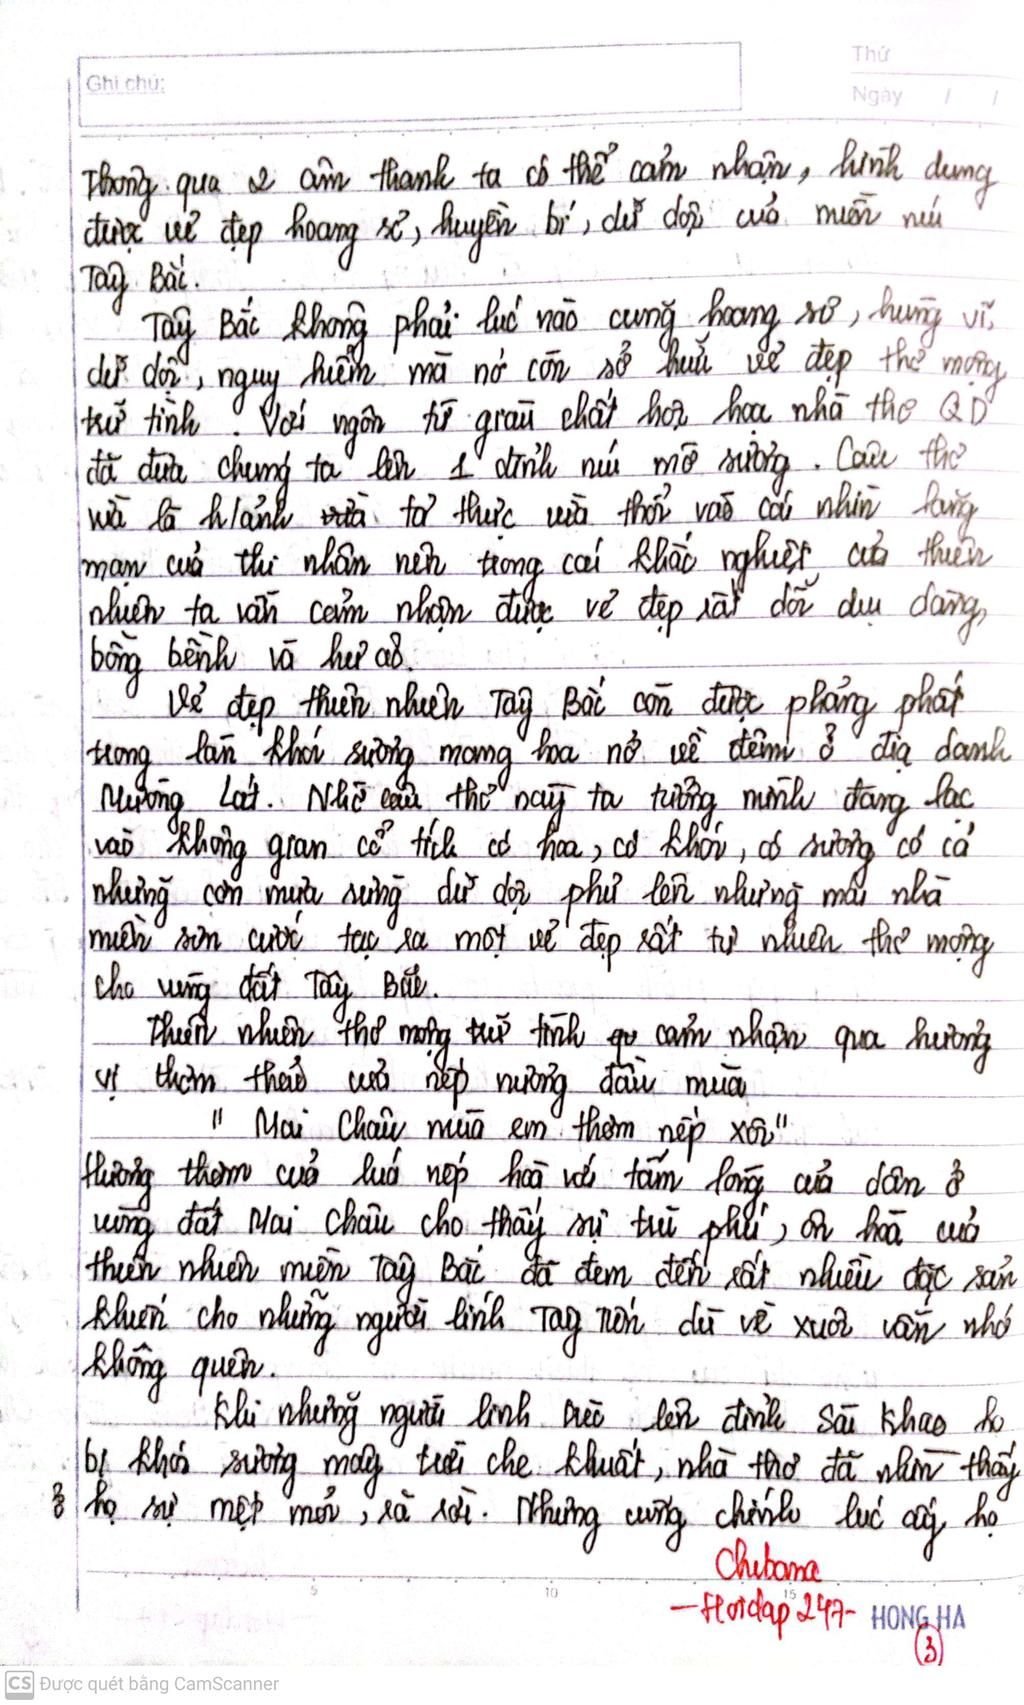 Ghi chú:
Thứ
Ngày / /
Thông qua 2 âm thanh ta có thể cảm nhận, hình dung
được vẻ đẹp hoang sơ, huyền bí, dữ dội của miền núi
Tây Bắc.
Tây Bắc không phải lúc nào cũng hoang sơ, hùng vĩ,
dữ dội, nguy hiểm mà nó còn sở hữu vẻ đẹp thơ mộng
trữ tình. Với ngôn từ giàu chất hội hoạ nhà thơ QD
đã đưa chúng ta lên 1 đỉnh núi mờ sương. Câu thơ
vừa là h/ảnh tả thực vừa thổi vào cái nhìn lãng
mạn của thi nhân nên trong cái khắc nghiệt của thiên
nhiên ta vẫn cảm nhận được vẻ đẹp rất đỗi dịu dàng,
bồng bềnh và hư ảo.
Vẻ đẹp thiên nhiên Tây Bắc còn được phảng phất
trong làn khói sương mang hoa nở về đêm ở địa danh
Mường Lát. Nhờ câu thơ này ta tưởng mình đang lạc
vào không gian cổ tích có hoa, có khói, có sương có cả
những cơn mưa rừng dữ dội phủ lên những mái nhà
miền sơn cước tạc ra một vẻ đẹp rất tự nhiên thơ mộng
cho vùng đất Tây Bắc.
Thiên nhiên thơ mộng trữ tình cảm nhận qua hương
vị thơm thảo của nếp nương đầu mùa
" Mai Châu mùa em thơm nếp xôi"
Hương thơm của lúa nếp hoà với tấm lòng của dân ở
vùng đất Mai Châu cho thấy sự trù phú, ôn hoà của
thiên nhiên miền Tây Bắc đã đem đến rất nhiều đặc sản
khiến cho những người lính Tây Tiến dù về xuôi vẫn nhớ
không quên.
Khi những người lính trèo lên đỉnh Sài Khao họ
bị khói sương mây trời che khuất, nhà thơ đã nhìn thấy
ở họ sự mệt mỏi, rã rời. Nhưng cũng chính lúc ấy, họ
Chibana
- Hoidap 247 -
HONG HA
3
5 10 15 2
CS Được quét bằng CamScanner